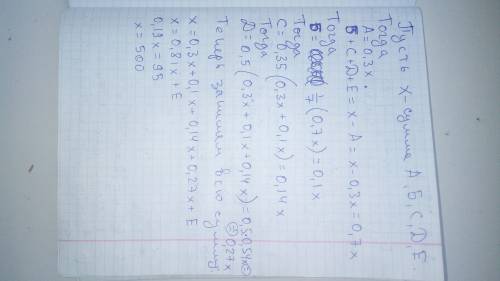 Пусть x - сумма A, Б, C, D, E.
Тогда
A = 0,3x.
Б + C + D + E = x - A = x - 0,3x = 0,7x
Тогда
Б = 1/7 (0,7x) = 0,1x
Тогда
C = 0,35 (0,3x + 0,1x) = 0,14x
Тогда
D = 0,5 (0,3x + 0,1x + 0,14x) = 0,5·0,54x =
= 0,27x
Теперь запишем всю сумму:
x = 0,3x + 0,1x + 0,14x + 0,27x + E
x = 0,81x + E
0,19x = 95
x = 500